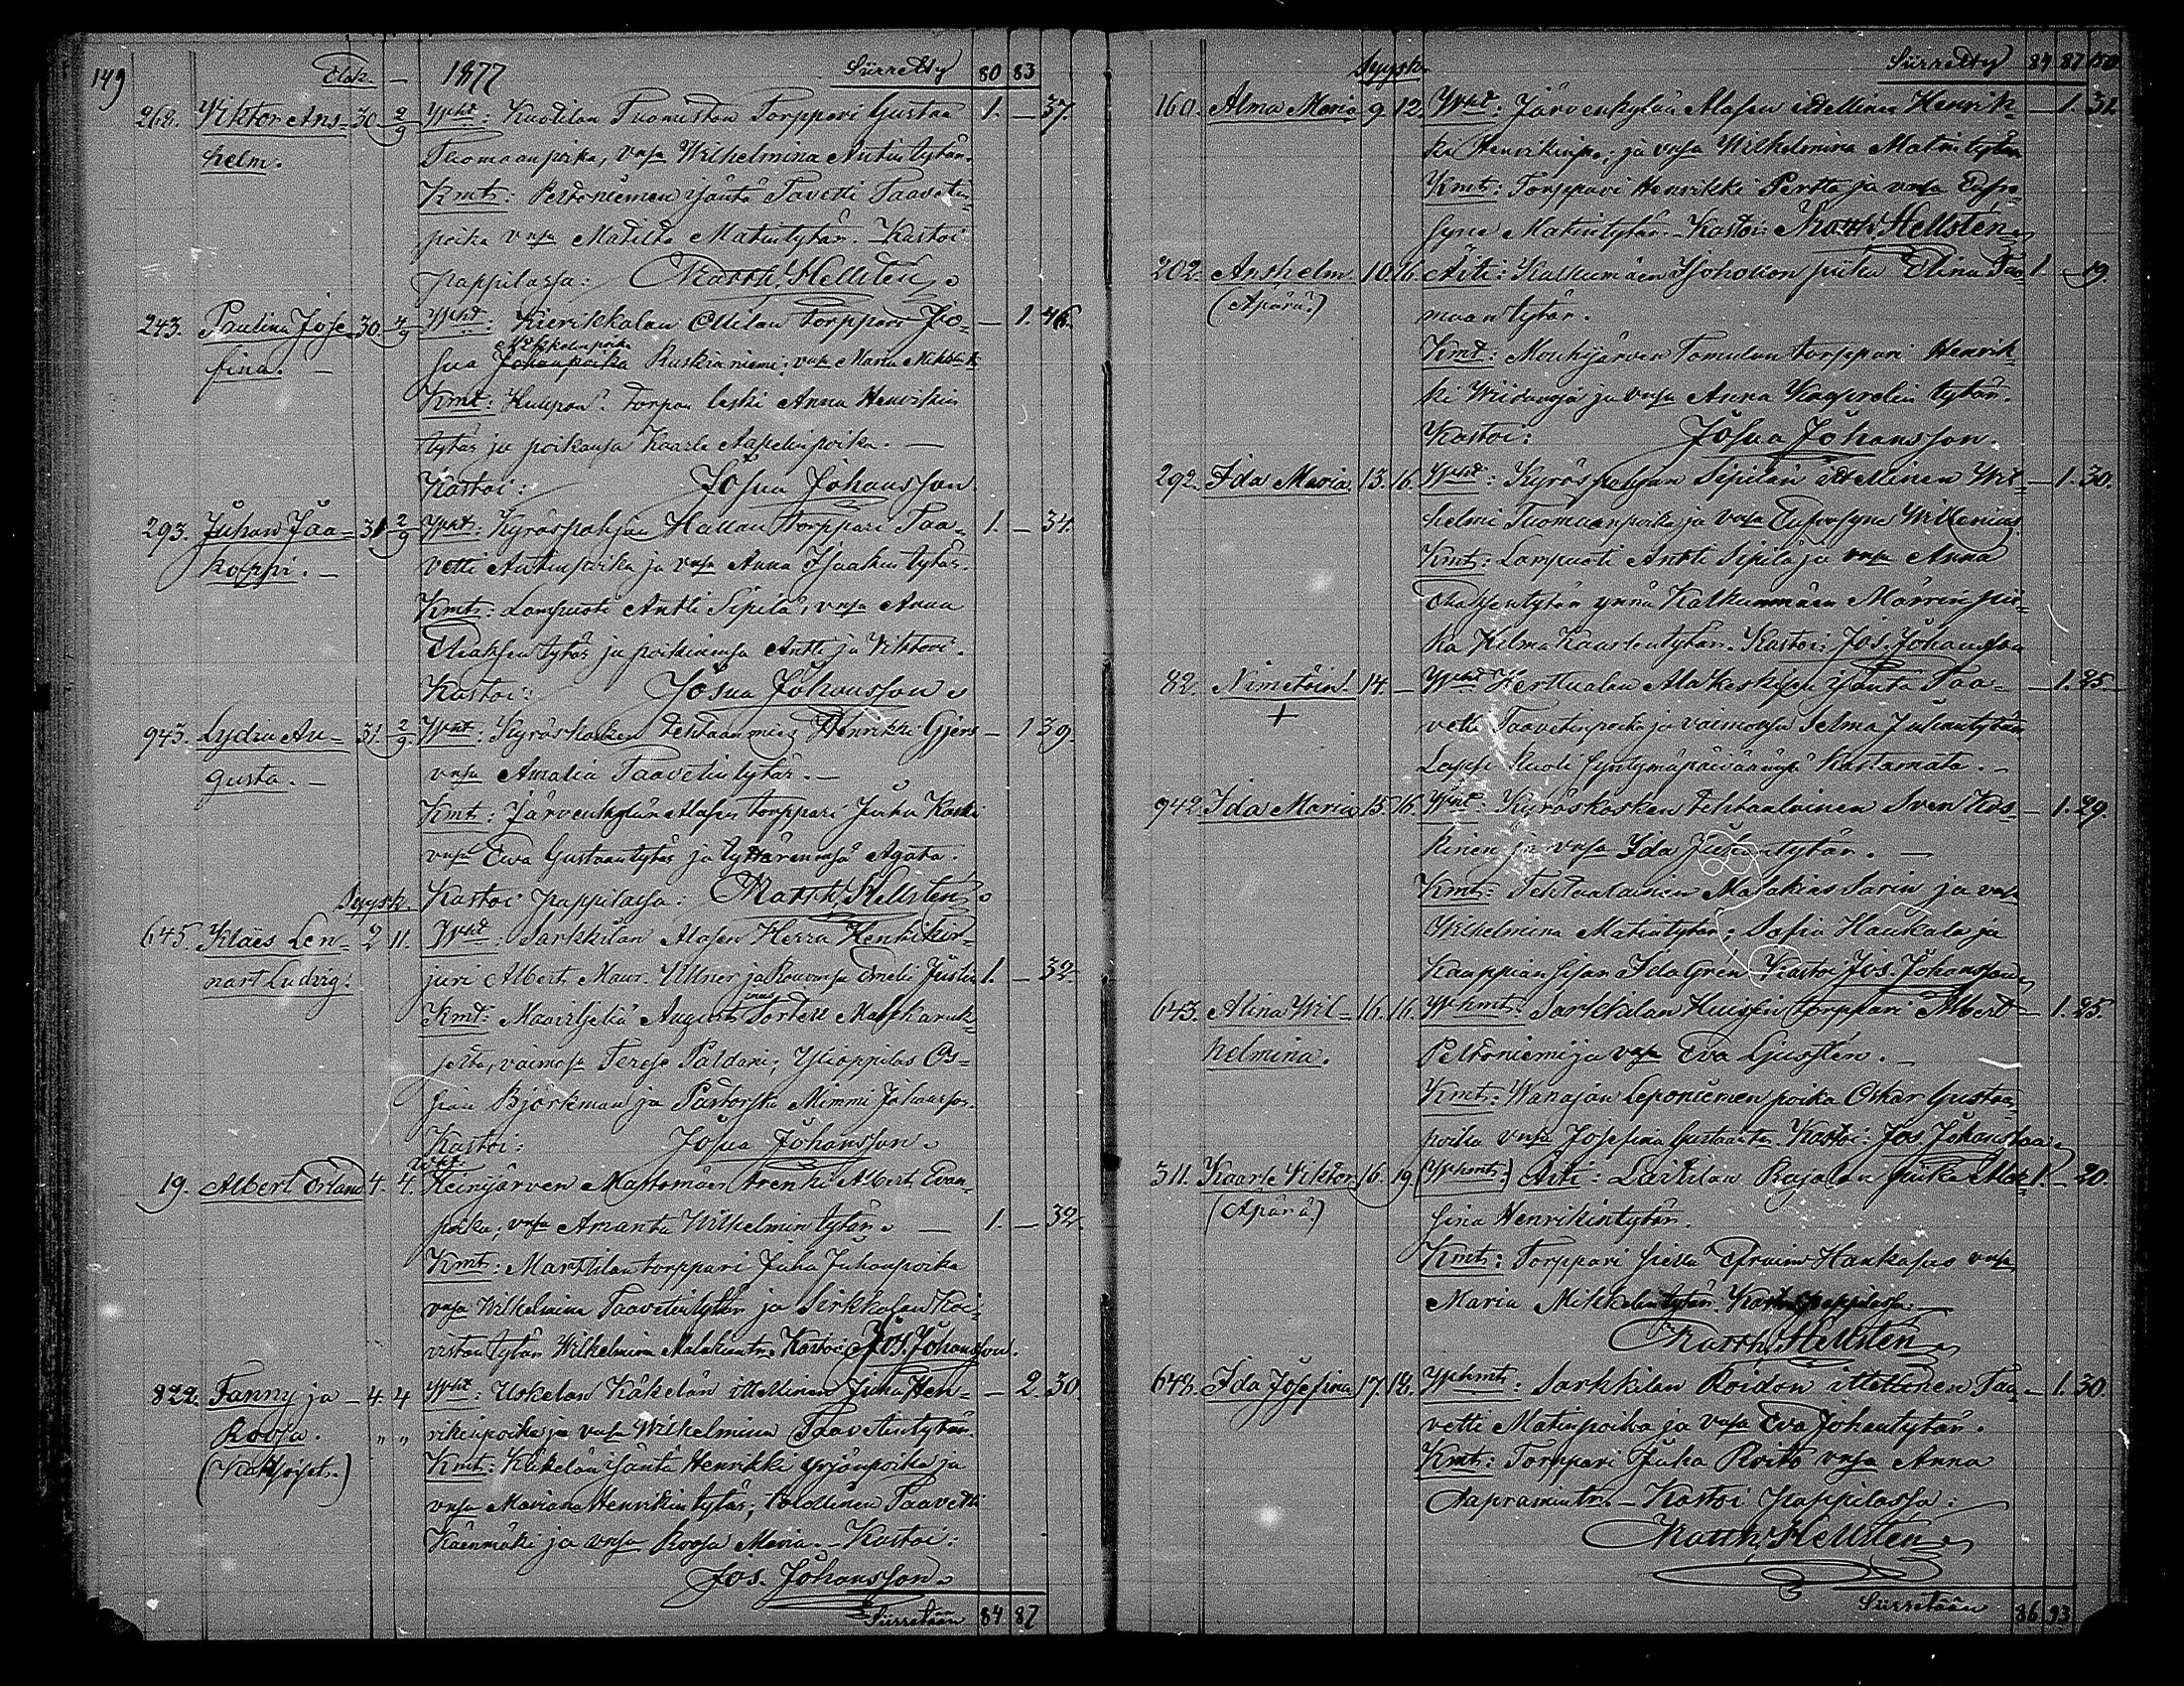 149 Elok. — 1877 Siirretty 80 83
268. Viktor Ans= 30 2/9 Ypht: Kuotilan Tuomiston Torppari Gustaa 1. — 37.
helm. Tuomaanpoika, vmsa Wilhelmina Antintytär.
Kmt: Peltoniemen isäntä Tavetti Taavetin
poika vmsa Matilda Matintytär. Kastoi
pappilassa: Matth. Hellstén
243. Paulina Jose= 30 4/9 Ypht: Kierikkalan Ollilan torppari Jo= — 1. 46.
fina. — sua Johanpoika Mikkelinpoika Raskinniemi; vmsa Maria
Kmt: torpan leski Anna Henrikin
tytär ja poikansa Kaarle Aapelinpoika. —
Kastoi: Josua Johansson
293. Juhan Jaa= 31 2/9 Ypht: Kyröspohjan Hallan torppari Taa= 1. — 34.
koppi. — vetti Antinpoika ja vmsa Anna Isaakin tytär.
Kmt: Lampuoti Antti Sipilä, vmsa Anna
tytär ja poikinensa Antti ja Viktori.
Kastoi: Josua Johansson
943. Lydia Au= 31. 2/9. Ypht: Kyröskosken tehtaanmies Henrikki Gjers — 1 39.
gusta. — vmsa Amalia Taavetintytär. —
Kmt: Järvenkylän Alasen torppari Juha Koski
vmsa Ewa Gustaantytär ja tyttärensä Agata.
Syysk. Kastoi pappilassa: Matth. Hellstén
645. Kläes Len= 2 11. Ypht: Sarkkilan Alasen Herra Henkikir=
nart Ludvig. juri Albert Maur. Ullner ja Rouvansa Emeli Justin 1. — 32.
Kmt: Maanviljeliä August Mats
vaimosa Teresa Paldani; Ylioppilas Os=
sian Björkman ja Pastorska Mimmi Johansson.
Kastoi: Josua Johansson
19. Albert Örland 4. 4. Ypht. Heinijärven Mattomäen trenki Albert Evan
poika; vmsa Amanta Wilhelmintytär. — 1. — 32.
Kmt: Marttilan torppari Juha Juhanpoika
vmsa Wilhelmina Taavetintytär ja Sirkkasan Koi
viston tytär Wilhelmina Malakiantr. Kastoi Jos. Johansson.
822. Fanny ja — 4. 4 Ypht: Uskelan Käkelän itsellinen Juha Hen= — 2. 30.
Roosa. " " rikinpoika ja vmsa Wilhelmina Taavetintytär.
(Kaksoiset.) Kmt: Käkelän isäntä Henrikki Yrjönpoika ja
vmsa Mariana Henrikintytär; itsellinen Taavetti
Käenmäki ja vmsa Roosa Maria. — Kastoi:
Jos. Johansson
Siirretään 84 87
Syysk. Siirretty 84 87 150
160. Alma Maria 9. 12. Ypht: Järvenkylän Alasen itsellinen Henrik= — 1. 31.
ki Henrikinp.; ja vmsa Wilhelmina Matintytär
Kmt: Torppari Henrikki Pertta ja vmsa Eufro
syne Matintytär. — Kastoi: Matth. Hellstén
202. Anshelm. 10. 16. Äiti: Kalkunmäen Isohokon piika Elina Tuo 1. — 19.
(Äpärä.) maan tytär.
Kmt: Mouhijärven Tomulan torppari Henrik=
ki Wiidanoja ja vmsa Anna Kasprelin tytär.
Kastoi: Josua Johansson.
292. Ida Maria. 13. 16. Ypht: Kyröspohjan Sipilän itsellinen Wil= — 1. 30.
helmi Tuomaanpoika ja vmsa Eufrosyne Willenius.
Kmt: Lampuoti Antti Sipilä ja vmsa Anna
tytär ynnä Kalkunmäen Märrin pii=
ka Hilma Kaarlentytär. Kastoi: Jos. Johansson
82. Nimetöin. 14. — Ypht Herttualan Alakeskisen isäntä Taa= — 1. 25.
+ vetti Taavetinpoika ja vaimonsa Selma Juhantytär.
Lapsi kuoli syntymäpäivänänsä kastamata. —
942. Ida Maria 15. 16. Ypht: Kyröskosken tehtaalainen Sven Kos= — 1. 29.
kinen ja vmsa Ida Juhantytär. —
Kmt: Tehtaalainen Malakias Sarin ja vmsa
Wilhelmina Matintytär; Sofia Haukala ja
Kauppiaan Ida Grén. Kastoi Jos. Johansson
643. Alina Wil= 16. 16. Yphmt: Sarkkilan Huisin torppari Albert — 1. 25.
helmina. Peltoniemi ja vmsa Eva Ljustén. —
Kmt: Wanajan Leponiemen poika Oskar Gustaan
poika vmsa Josefina Gustaantr. Kastoi: Jos. Johansson
311. Kaarle Viktor 16. 19. (Yphmt:) Äiti: Laitilan Rajalan piika 1. — 20.
(Äpärä.) sina Henrikintytär.
Kmt: Torppari sieltä Efraim Haukasus vmsa
Maria Mikkelintytär. Kastoi pappilassa: —
Matth. Hellstén
648. Ida Josefina 17. 18. Yphmt: Sarkkilan Roidon itsellinen Taa — 1. 30.
vetti Matinpoika ja vmsa Eva Johantytär.
Kmt: Torppari Juha Roito vmsa Anna
Aapramintr. — Kastoi pappilassa:
Matth. Hellstén
Siirretään 86 93